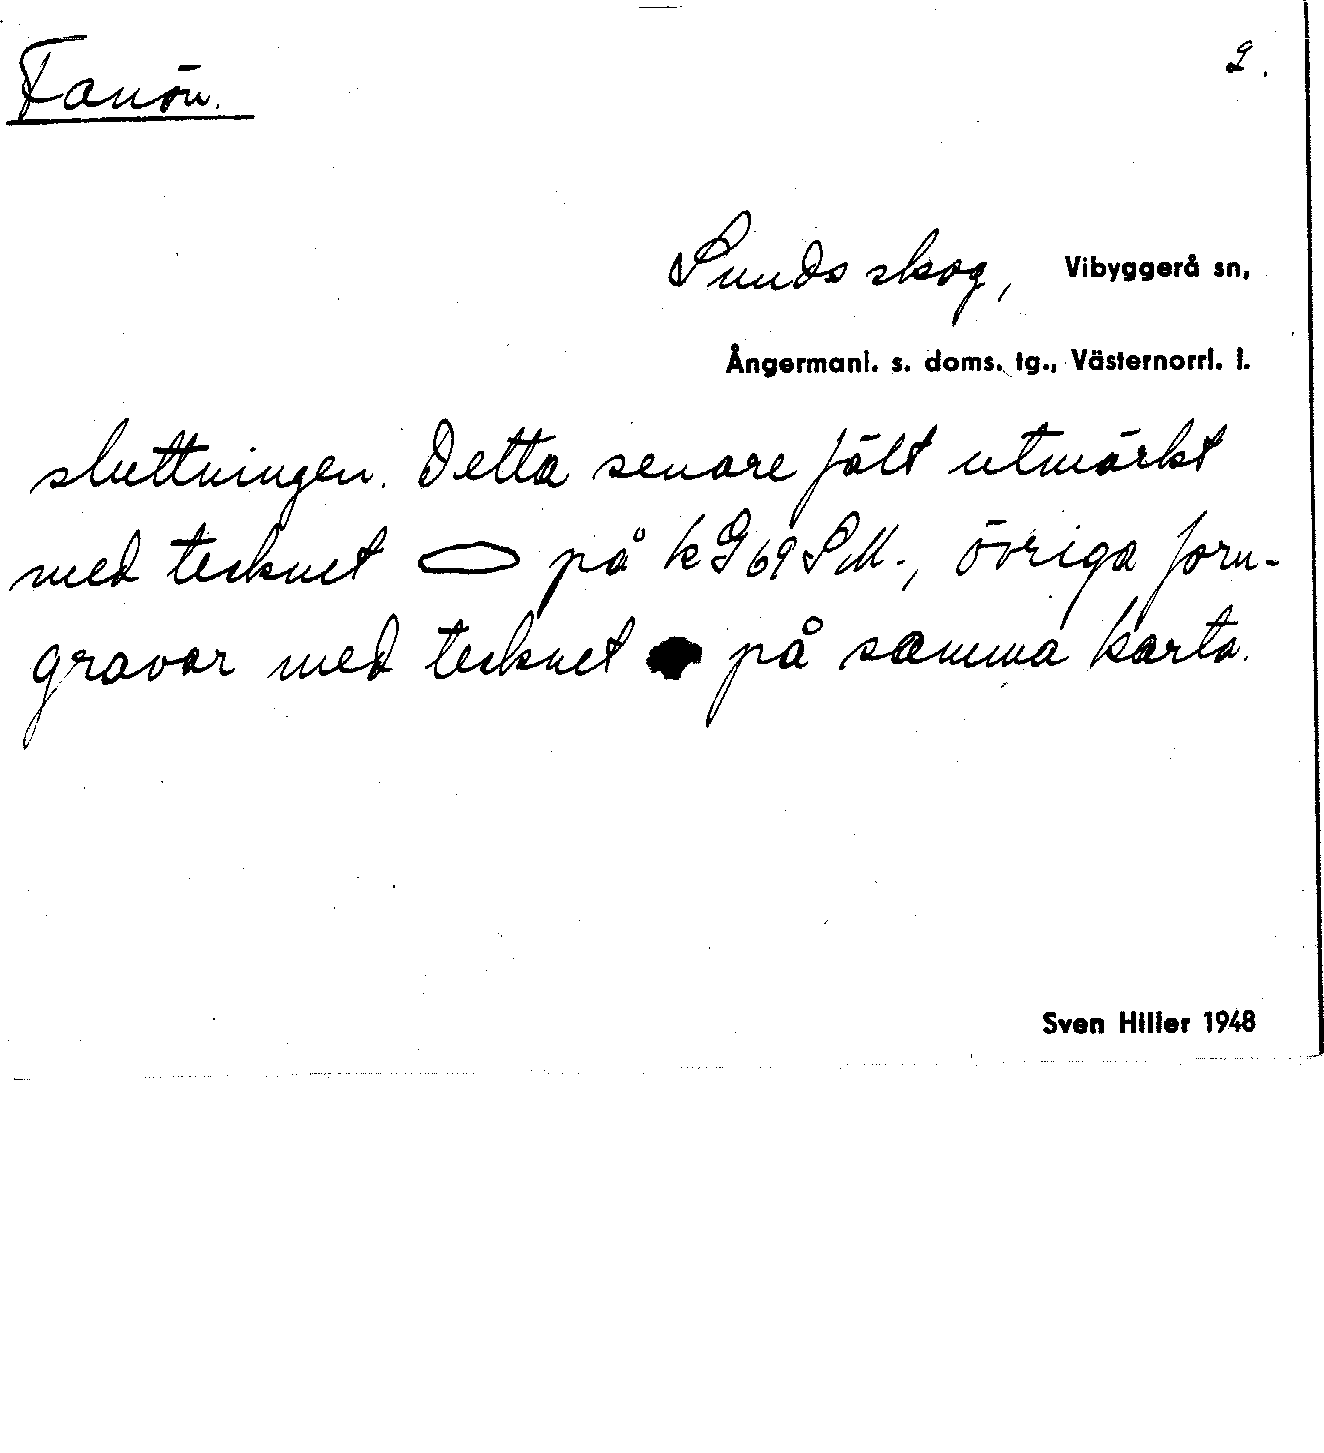 Fanön.
2.
Sunds skog, Vibyggerå sn,
Ångermanl. s. doms. tg., Västernorrl. l.
sluttningen. Detta senare fält utmärkt
med tecknet på k G 69 S M., övriga forn-
gravar med tecknet på samma karta.
Sven Hiller 1948